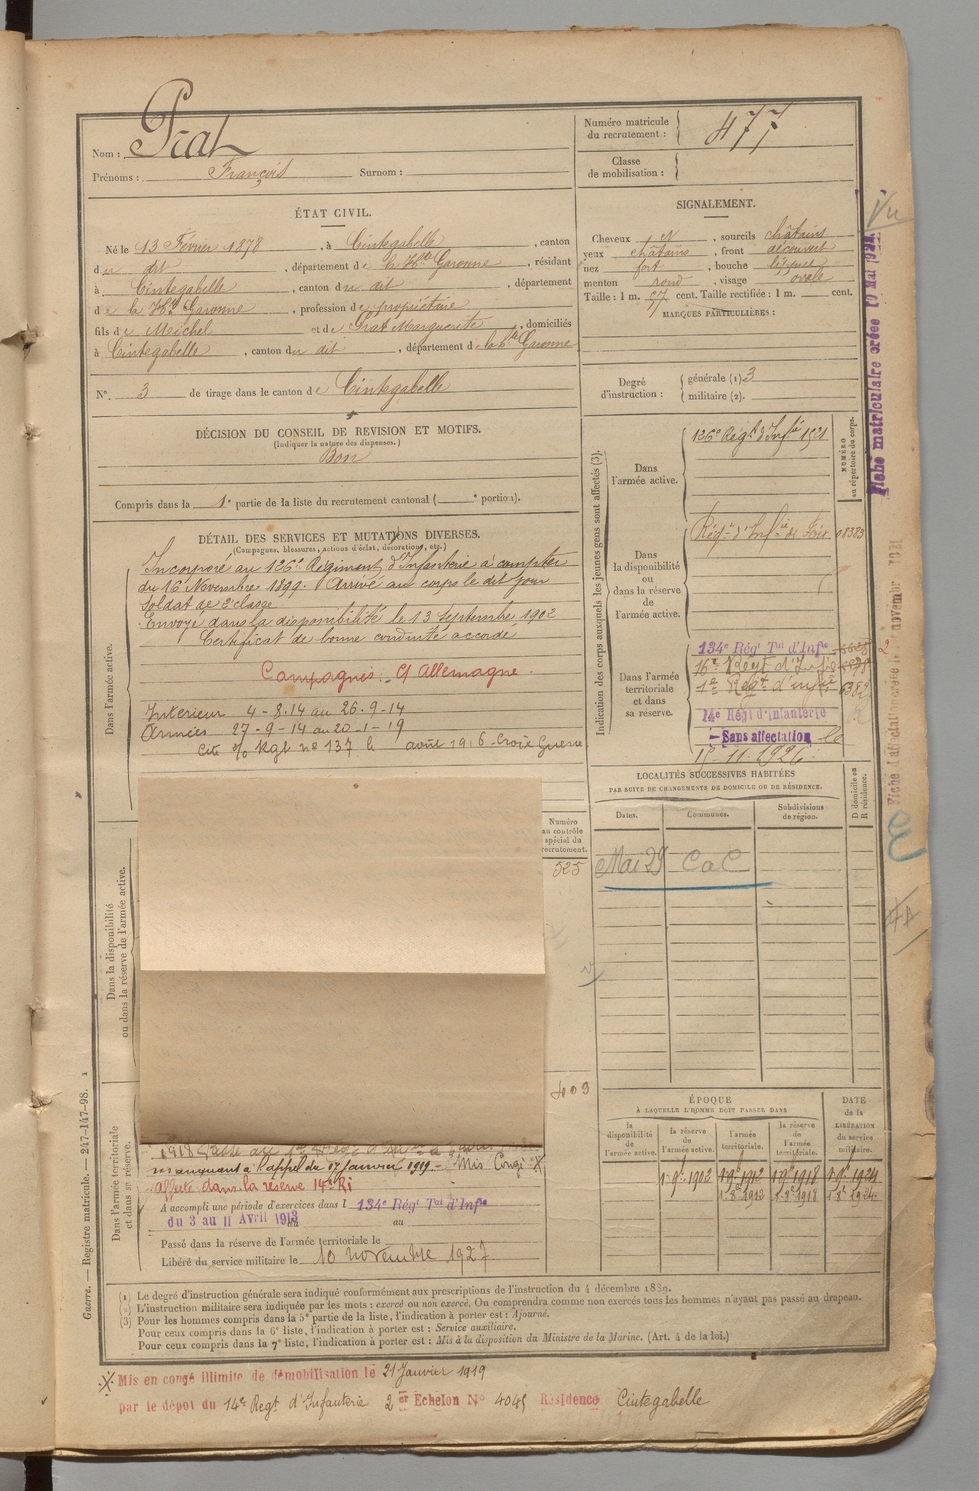 Numéro matricule
du recrutement : 477
Classe
de mobilisation :
Nom : Prat
Prénoms : François Surnom :
ÉTAT CIVIL.
Né le 13 Février 1878, à Cintegabelle, canton
du dit, département de la Hte Garonne, résidant
à Cintegabelle, canton du dit, département
de la Hte Garonne, profession de propriétaire
fils de Meichel et de Prat Marguerite, domiciliés
à Cintegabelle, canton du dit, département de la Hte Garonne
N° 3 de tirage dans le canton de Cintegabelle
SIGNALEMENT.
Cheveux N, sourcils châtains
yeux châtains, front découvert
nez fort, bouche lippue
menton rond, visage ovale
Taille : 1 m. 57 cent. Taille rectifiée : 1 m. cent.
MARQUES PARTICULIÈRES :
Degré
d'instruction :
générale (1) 3
militaire (2).
DÉCISION DU CONSEIL DE REVISION ET MOTIFS.
(Indiquer la nature des dispenses.)
Bon
Compris dans la 1e partie de la liste du recrutement cantonal ( e portion).
DÉTAIL DES SERVICES ET MUTATIONS DIVERSES.
(Campagnes, blessures, actions d'éclat, décorations, etc.)
Dans l'armée active.
Incorporé au 126e Régiment d'Infanterie à compter
du 16 Novembre 1899. Arrivé au corps le dit jour
Soldat de 2e classe
Envoyé dans la disponibilité le 13 septembre 1902
Certificat de bonne conduite accordé
Campagnes : Ct Allemagne
Intérieur 4-8.14 au 26.9-14
Armées 27-9-14 au 20-1-19
Cité o/o Rgt no 137 le août 1916 - Croix Guerre
Numéro
au contrôle
spécial du
recrutement.
525
409
Dans la disponibilité
ou dans la réserve de l'armée active.
Dans l'armée territoriale
et dans sa réserve.
manquant à l'appel du 17 janvier 1919 - Mis Congé X
Affecté dans la réserve 14e RI
A accompli une période d'exercices dans l 134e Régt Tal d'Infie
du 3 au 11 Avril 1913 au
Passé dans la réserve de l'armée territoriale le
Libéré du service militaire le 10 novembre 1927
Indication des corps auxquels les jeunes gens sont affectés (3).
NUMÉRO
au répertoire du corps.
Dans
l'armée active.
126e Régt d'Infie 1521
Dans
la disponibilité
ou
dans la réserve
de
l'armée active.
Régt d'Infie de Foix 08383
Dans l'armée
territoriale
et dans
sa réserve.
134e Régt Tal d'Infie
16e Régt d'Infie
1e Régt d'infie
14e Régt d'Infanterie
Sans affectation le
15.11.1926
LOCALITÉS SUCCESSIVES HABITÉES
PAR SUITE DE CHANGEMENTS DE DOMICILE OU DE RÉSIDENCE.
Dates.
Communes.
Subdivisions
de région.
D domicile ou
R résidence.
Mai 29 CaC
ÉPOQUE
À LAQUELLE L'HOMME DOIT PASSER DANS
la
disponibilité
de
l'armée active.
la
réserve
de
l'armée active.
l'armée
territoriale.
la
réserve
de
l'armée
territoriale.
DATE
de la
LIBÉRATION
du service
militaire.
1 9e 1902 1 9e 1912 1 9e 1918 1 9e 1924
1 8e 1912 1 8e 1918 1 8e 1924
Fiche matriculaire créée 10 Mai 1922
Vu
Guerre. — Registre matricule. — 247-147-98. 1
(1) Le degré d'instruction générale sera indiqué conformément aux prescriptions de l'instruction du 4 décembre 1889.
(2) L'instruction militaire sera indiquée par les mots : exercé ou non exercé. On comprendra comme non exercés tous les hommes n'ayant pas passé au drapeau.
(3) Pour les hommes compris dans la 5e partie de la liste, l'indication à porter est : Ajourné.
Pour ceux compris dans la 6e liste, l'indication à porter est : Service auxiliaire.
Pour ceux compris dans la 7e liste, l'indication à porter est : Mis à la disposition du Ministre de la Marine. (Art. 4 de la loi.)
X Mis en congé illimité de démobilisation le 21 Janvier 1919
par le dépôt du 14e Regt d'Infanterie 2er Echelon No 4045 Résidence Cintegabelle